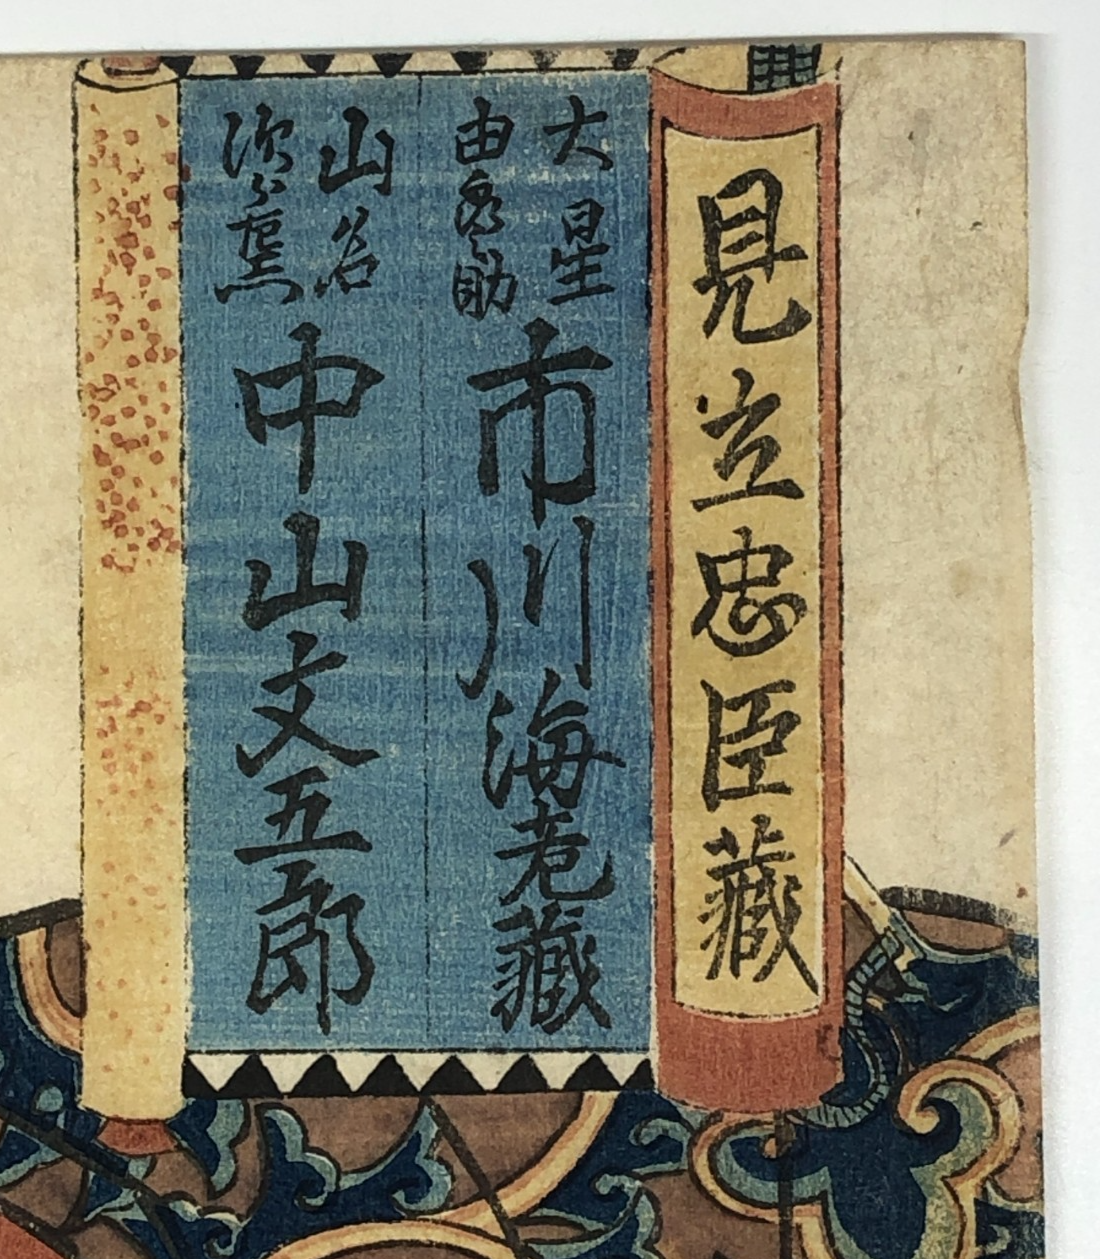 見立忠臣藏
大星
由良之助
市川海老藏
山名
中山文五郎